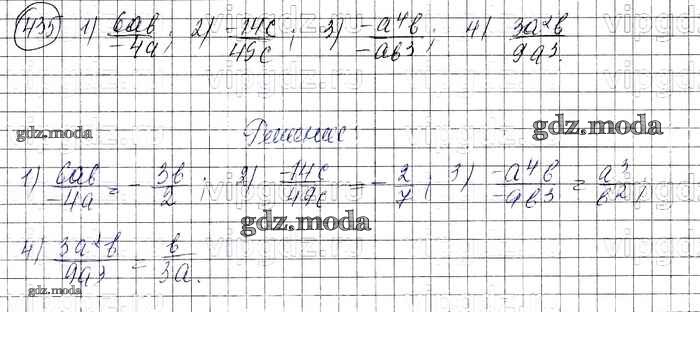 435 1) 6ab/-4a; 2) -14c/49c; 3) -a⁴b/-ab³; 4) 3a²b/9a³.
gdz.moda Решение: gdz.moda
1) 6ab/-4a = -3b/2; 2) -14c/49c = -2/7; 3) -a⁴b/-ab³ = a³/b²;
gdz.moda
4) 3a²b/9a³ = b/3a.
gdz.moda